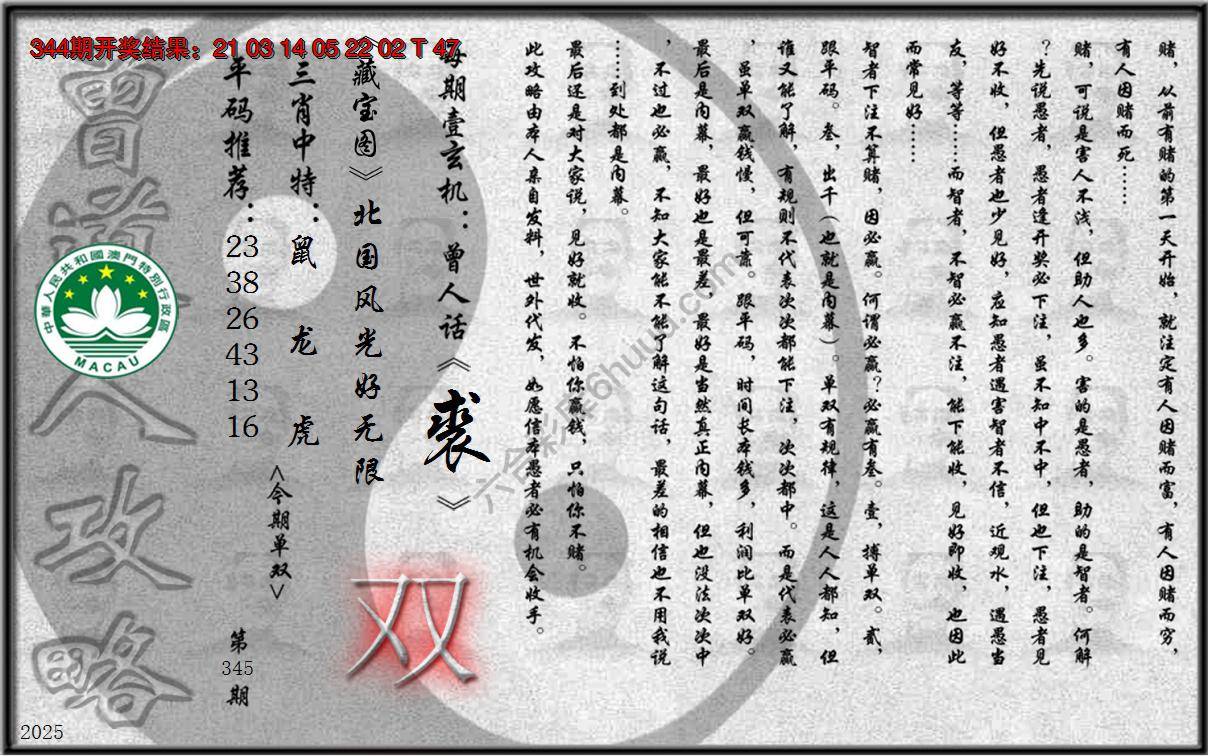 344期开奖结果：21 03 14 05 22 02 T 47
赌，从前有赌的第一天开始，就注定有人因赌而富，有人因赌而穷，
有人因赌而死……
赌，可说是害人不浅，但助人也多。害的是愚者，助的是智者。何解
？先说愚者，愚者逢开奖必下注，虽不知中不中，但也下注，愚者见
好不收，但愚者也少见好，应知愚者遇害智者不信，近观水，遇愚当
友，等等……而智者，不智必赢不注，能下能收，见好即收，也因此
而常见好……
智者下注不算赌，因必赢。何谓必赢？必赢有叁。壹，搏单双。贰，
跟平码。叁，出千（也就是内幕）。单双有规律，这是人人都知，但
谁又能了解，有规则不代表次次都能下注，次次都中。而是代表必赢
，虽单双赢钱慢，但可靠。跟平码，时间长本钱多，利润比单双好。
最后是内幕，最好也是最差，最好是当然真正内幕，但也没法次次中
，不过也必赢，不知大家能不能了解这句话，最差的相信也不用我说
……到处都是内幕。
最后还是对大家说，见好就收。不怕你赢钱，只怕你不赌。
此攻略由本人亲自发料，世外代发，如愿信本愚者必有机会收手。
每期壹玄机：曾人话《裘》
《藏宝图》北国风光好无限
双
三肖中特：鼠 龙 虎
<今期单双>
平码推荐：
23
38
26
43
13
16
第
345
期
曾道人攻略
中華人民共和國澳門特別行政區
MACAU
2025
六合彩库6huuu.com